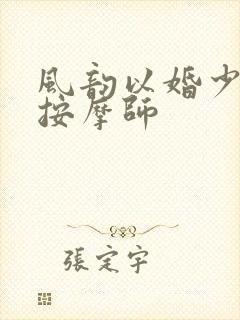 風韵以婚少
按摩師
張定宇